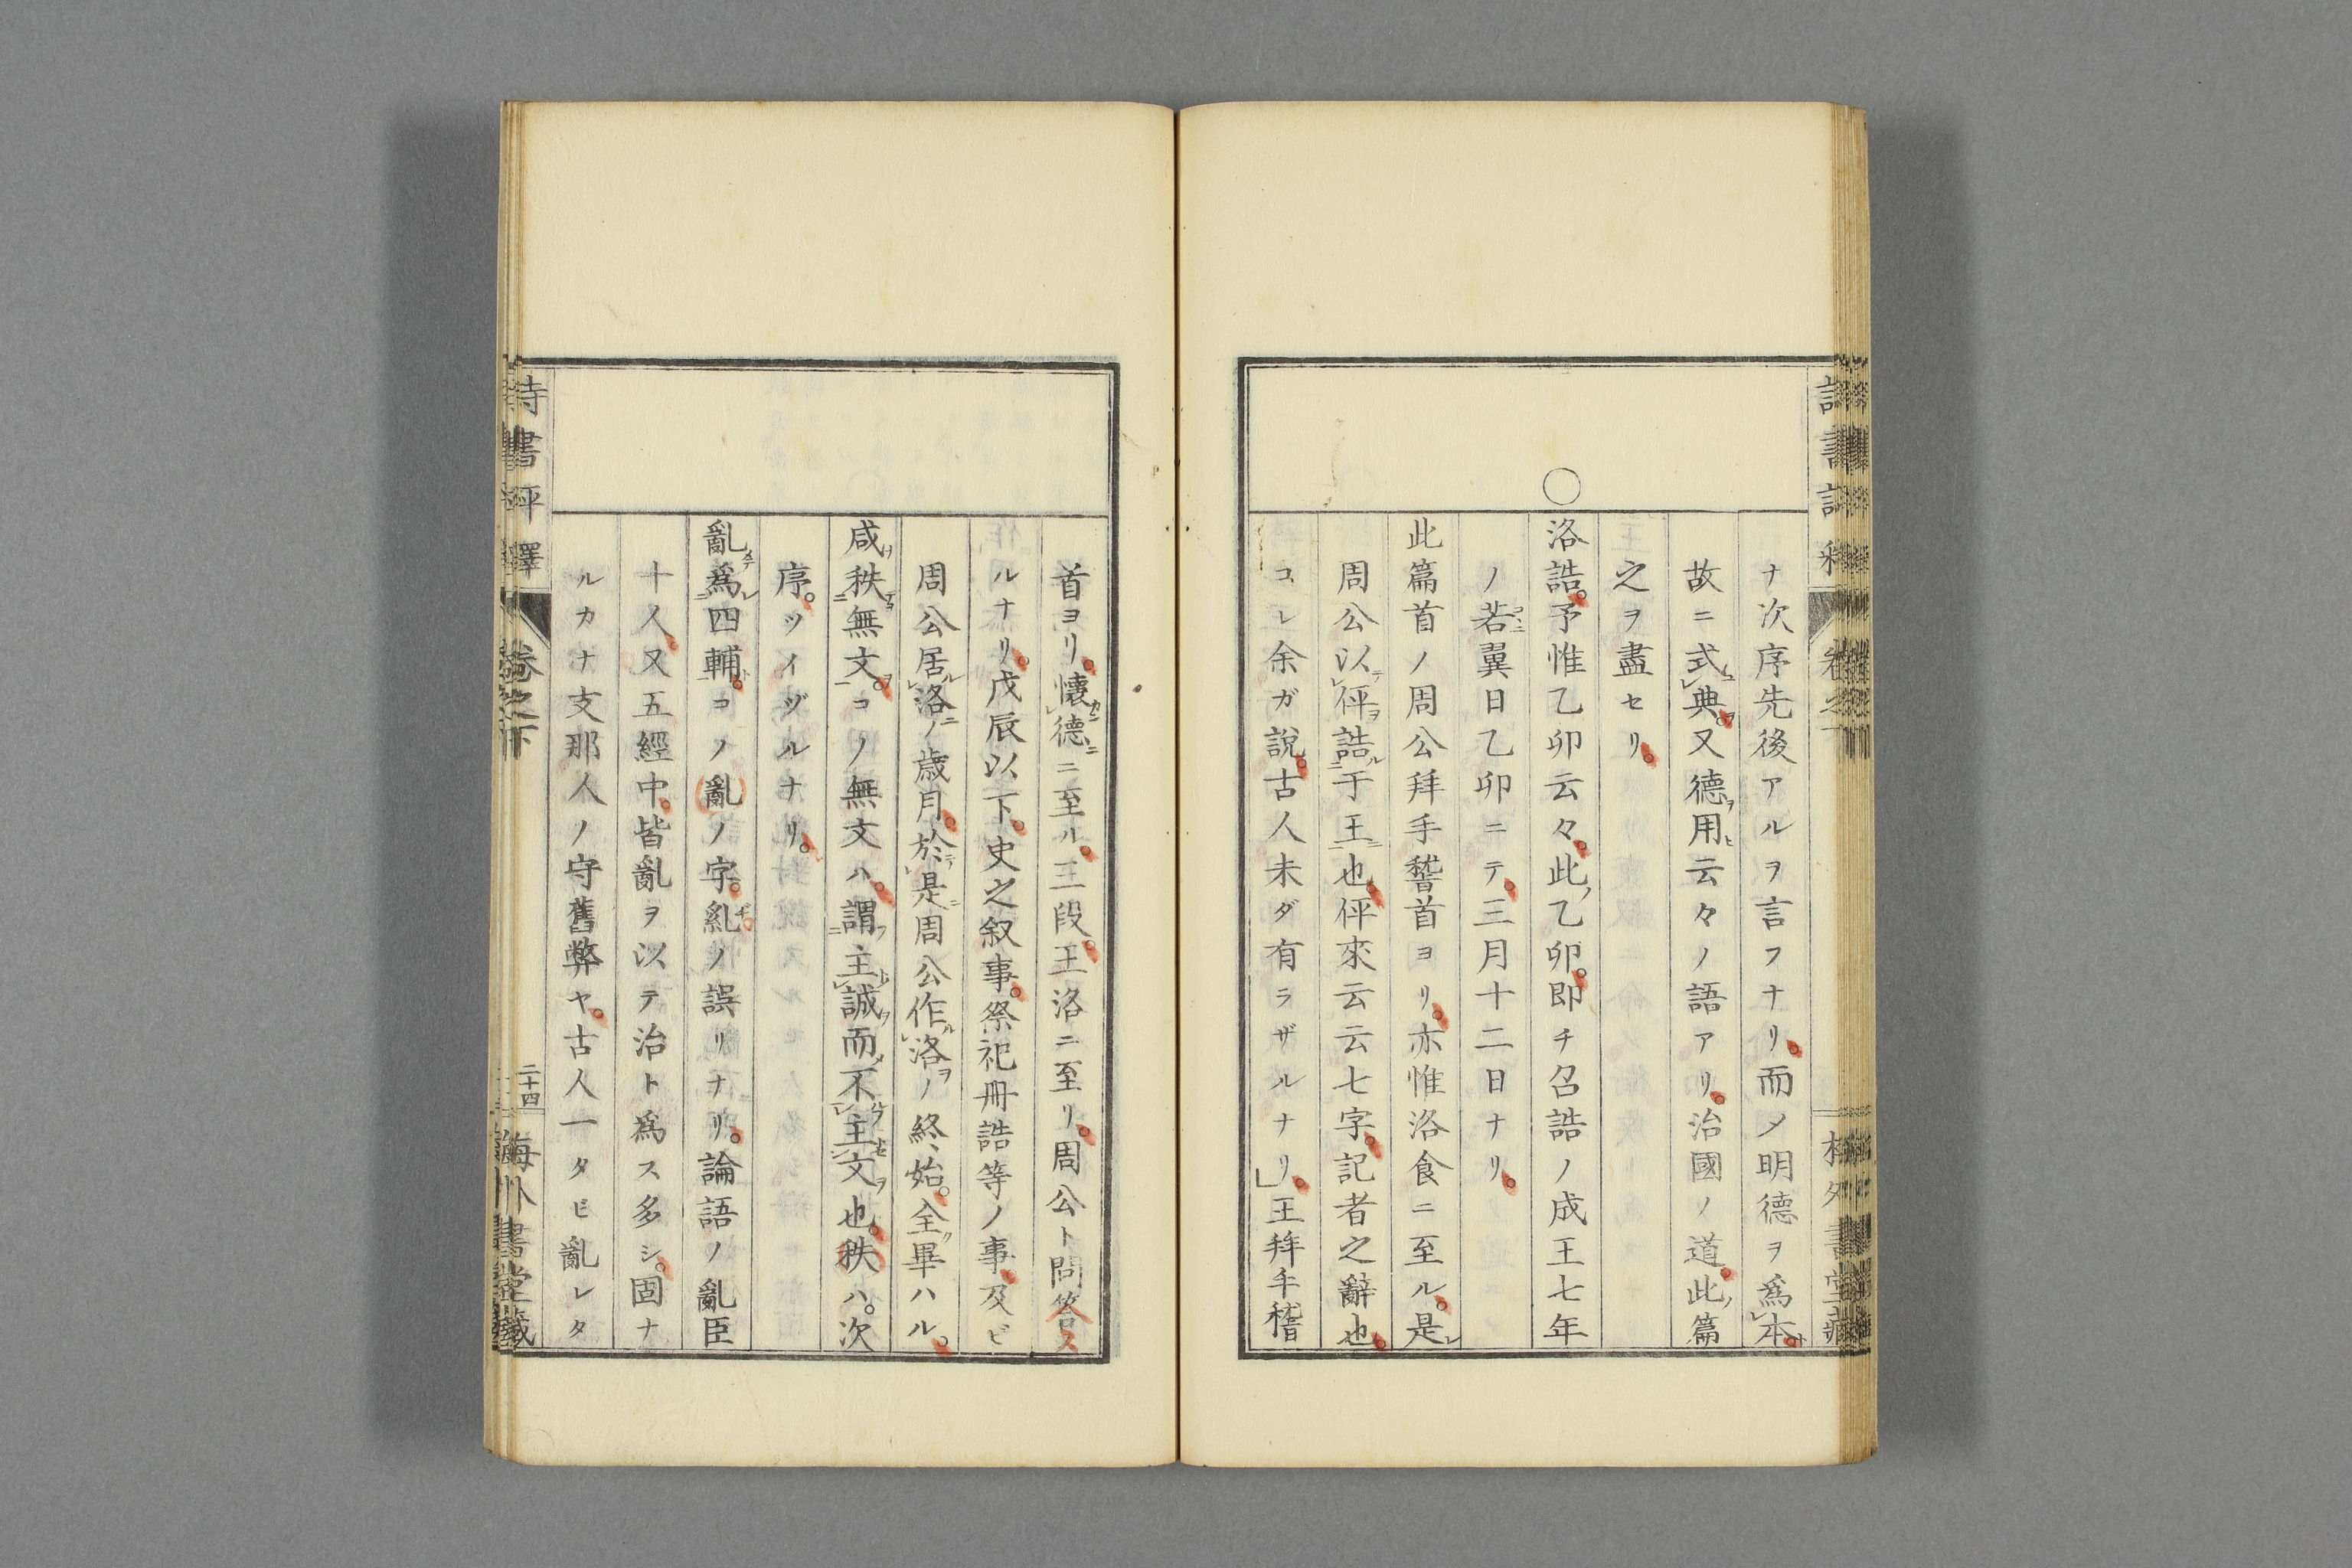 ナ次序先後アルヲ言フナリ。而メ明德ヲ爲本。
故ニ式典。又德用云々ノ語アリ。治國ノ道。此篇
之ヲ盡セリ。
○
洛誥。予惟乙卯云々。此乙卯。即チ召誥ノ成王七年
ノ若翼日乙卯ニテ。三月十二日ナリ。
此篇首ノ周公拜手稽首ヨリ。亦惟洛食ニ至ル。是
周公以伻誥于王也。伻來云云七字。記者之辭也。
コレ余ガ說。古人未ダ有ラザルナリ。」王拜手稽
首ヨリ。懷德ニ至ル。三段。王洛ニ至リ。周公ト問答ス
ルナリ。戊辰以下。史之叙事。祭祀冊誥等ノ事。及ビ
周公居洛ノ歳月。於是周公作洛ノ終始。全畢ハル。
咸秩無文。コノ無文ハ。謂主誠而不主文也。秩ハ。次
序。ツイヅルナリ。
亂爲四輔。コノ亂ノ字。乿ノ誤リナリ。論語ノ亂臣
十人。又五經中。皆亂ヲ以テ治ト爲ス多シ。固ナ
ルカナ支那人ノ守舊弊ヤ。古人一タビ亂レタ
詩書評釋
卷之下
二十四
梅外書堂藏